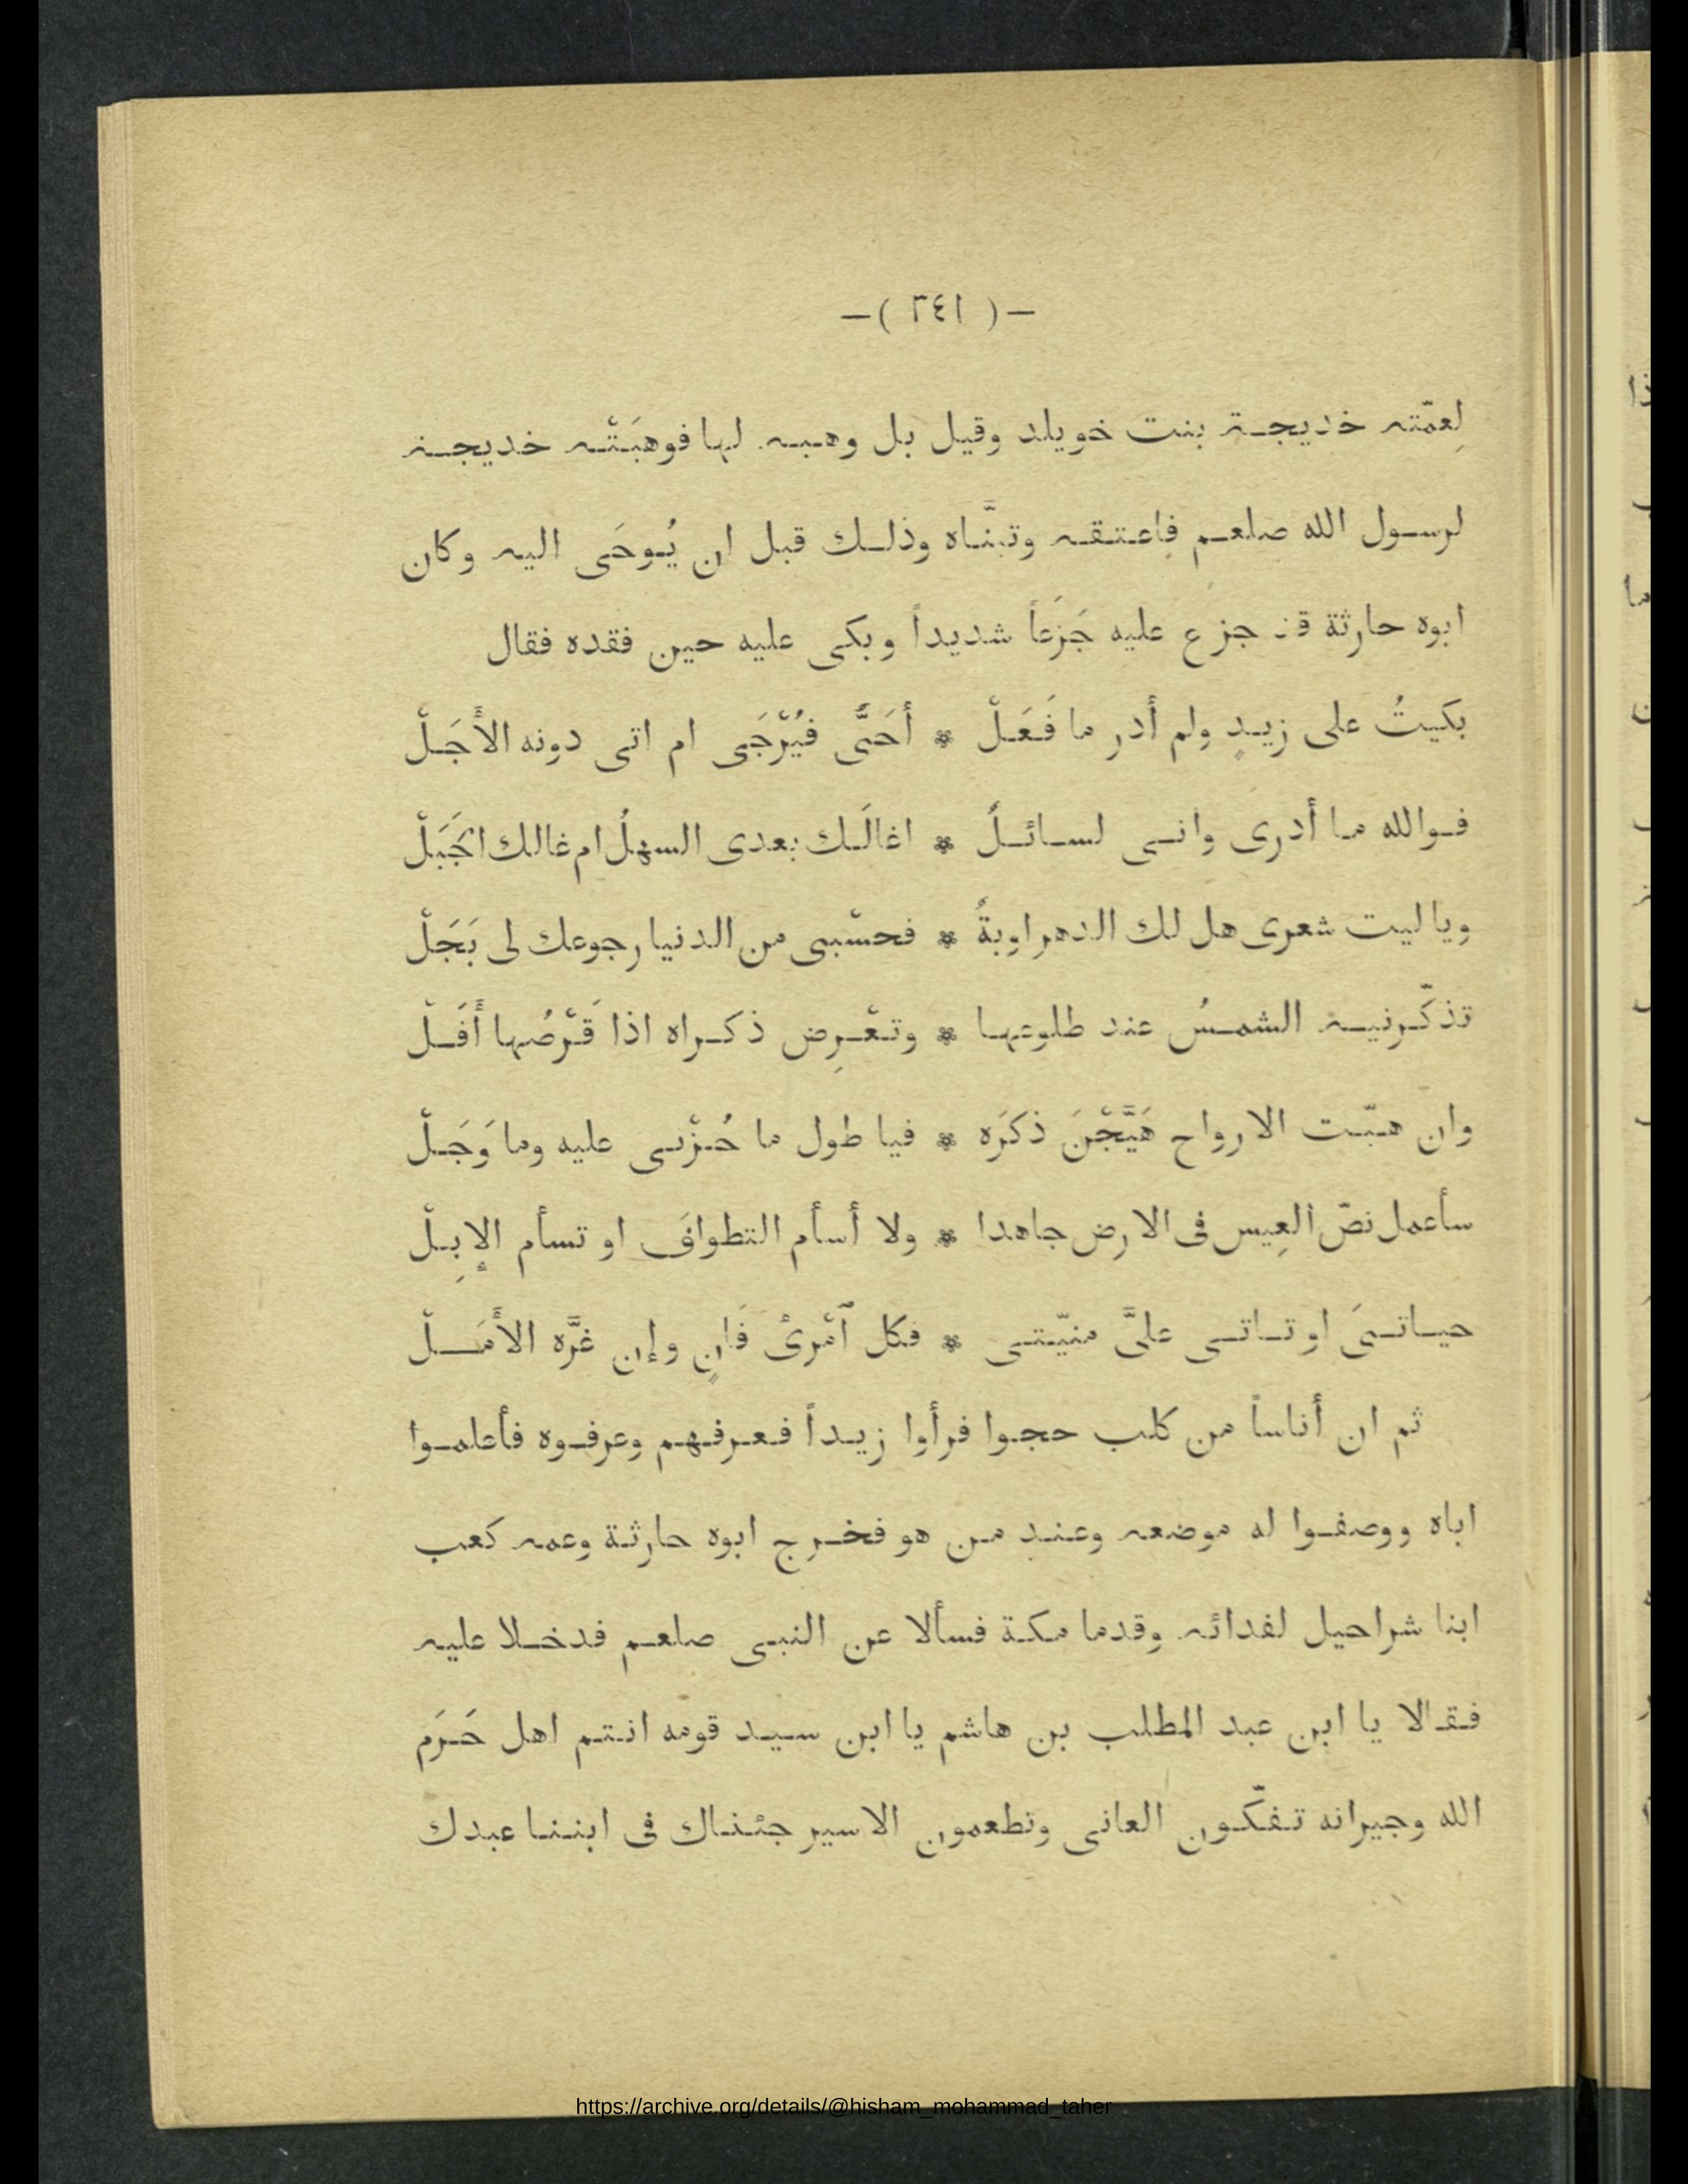 —( ٣٤١ )—
لِعمّته خديجة بنت خويلد وقيل بل وهبه لها فوهبَتْه خديجة
لرسول الله صلعم فاعتقه وتبنَّاه وذلك قبل ان يُوحَى اليه وكان
ابوه حارثة قد جزع عليه جَزَعاً شديداً وبكى عليه حين فقده فقال
بكيتُ على زيدٍ ولم أدر ما فَعَلْ * أحَىٌّ فيُرْجَى ام اتى دونه الأَجَلْ
فوالله ما أدرى وانى لسائلٌ * اغالَك بعدى السهلُ ام غالك الجَبَلْ
ويا ليت شعرى هل لك الدهر اوبةٌ * فحسْبى من الدنيا رجوعك لى بَجَلْ
تذكّرنيه الشمسُ عند طلوعها * وتعْرِض ذكراه اذا قَرْصُها أَفَلْ
وان هبّت الارواح هَيَّجْنَ ذكرَه * فيا طول ما حُزْنى عليه وما وَجَلْ
سأعمل نصّ العِيس فى الارض جاهدا * ولا أسأم التطوافَ او تسأم الإِبِلْ
حياتىَ او تاتى علىَّ منيّتى * فكل ٱمْرئْ فَانٍ وإن غرَّه الأَمَلْ
ثم ان أناساً من كلب حجوا فرأوا زيداً فعرفهم وعرفوه فأعلموا
اباه ووصفوا له موضعه وعند من هو فخرج ابوه حارثة وعمه كعب
ابنا شراحيل لفدائه وقدما مكة فسألا عن النبى صلعم فدخلا عليه
فقالا يا ابن عبد المطلب بن هاشم يا ابن سيد قومه انتم اهل حَرَم
الله وجيرانه تفكّون العانى وتطعمون الاسير جئناك فى ابننا عبدك
https://archive.org/details/@hisham_mohammad_taher